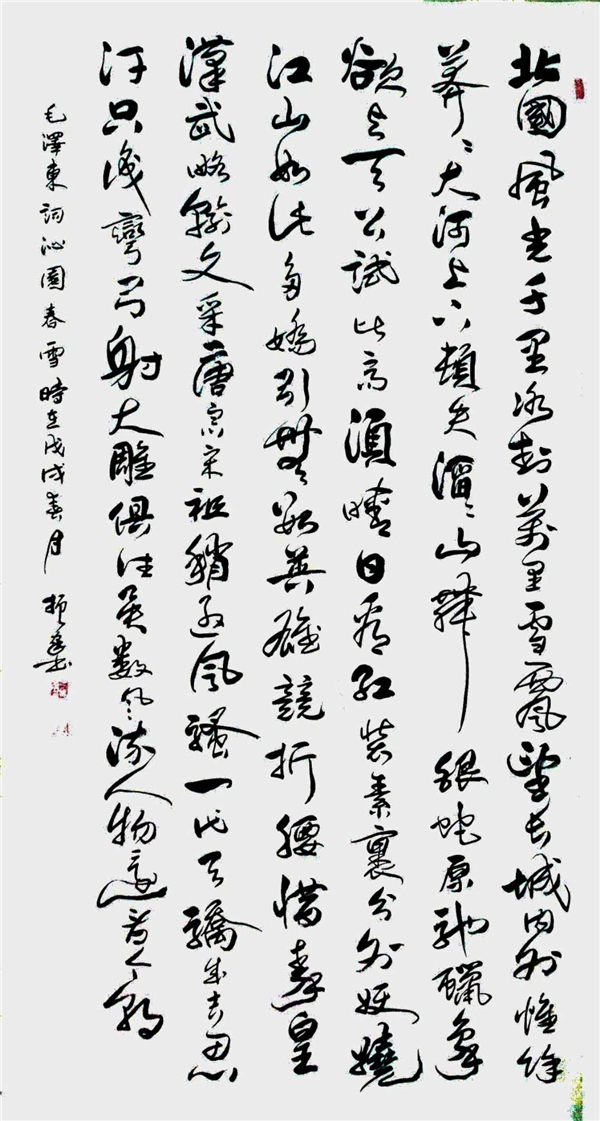 北國風光千里冰封萬里雪飄望長城内外惟餘
莽〻大河上下頓失滔〻山舞銀蛇原馳蠟象
欲與天公試比高須晴日看紅裝素裹分外妖嬈
江山如此多嬌引無數英雄競折腰惜秦皇
漢武略輸文采唐宗宋祖稍遜風騷一代天驕成吉思
汗只識彎弓射大雕俱往矣數風流人物還看今朝
毛澤東詞沁園春雪時在戊戌春月